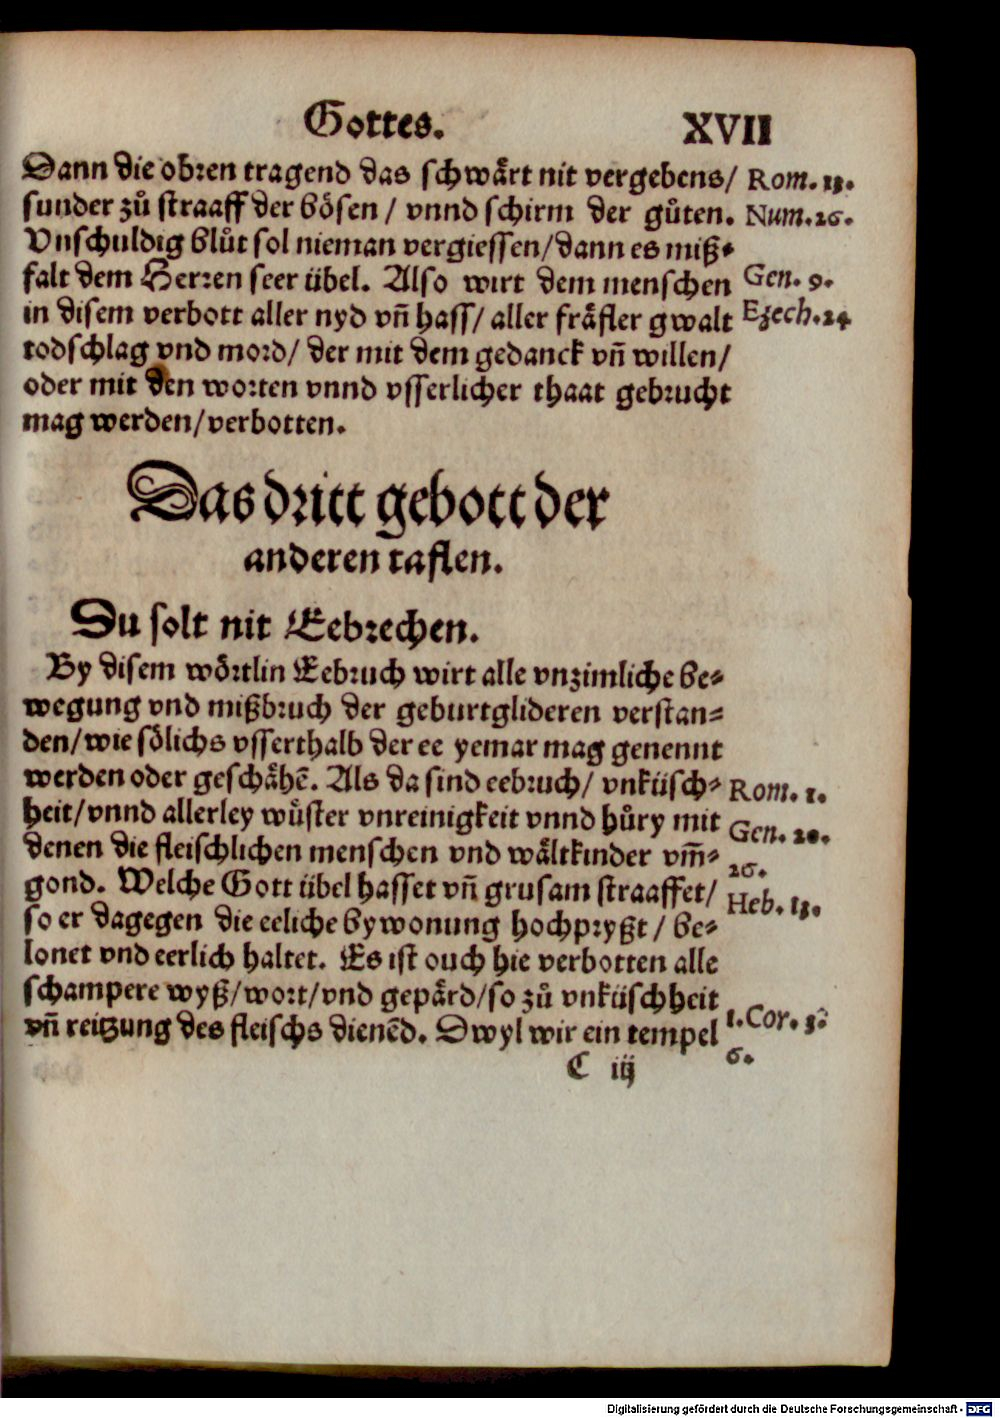 Gottes. XVII
Dann die obren tragend das schwårt nit vergebens/ Rom. 13.
sunder zů straaff der bösen / vnnd schirm der gůten. Num. 26.
Vnschuldig blůt sol nieman vergiessen/dann es miß⸗
falt dem Herren seer übel. Also wirt dem menschen Gen. 9.
in disem verbott aller nyd vñ hass/ aller fräfler gwalt Ezech. 24
todschlag vnd mord/ der mit dem gedanck vñ willen/
oder mit den worten vnnd vsserlicher thaat gebrucht
mag werden/verbotten.
Das dritt gebott der
anderen taflen.
Du solt nit Eebrechen.
By disem wörtlin Eebruch wirt alle vnzimliche be⸗
wegung vnd mißbruch der geburtglideren verstan⸗
den/wie sölichs vsserthalb der ee yemar mag genennt
werden oder geschähē. Als da sind eebruch/ vnküsch⸗ Rom. 1.
heit/vnnd allerley wüster vnreinigkeit vnnd hůry mit
denen die fleischlichen menschen vnd wältkinder vm̄⸗ Gen. 20.
gond. Welche Gott übel hasset vñ grusam straaffet/ 26.
so er dagegen die eeliche bywonung hochpryßt / be⸗ Heb. 13.
lonet vnd eerlich haltet. Es ist ouch hie verbotten alle
schampere wyß/wort/vnd gepärd/so zů vnküschheit
vñ reitzung des fleischs dienēd. Dwyl wir ein tempel 1. Cor. 3.
6.
C iij
Digitalisierung gefördert durch die Deutsche Forschungsgemeinschaft - DFG